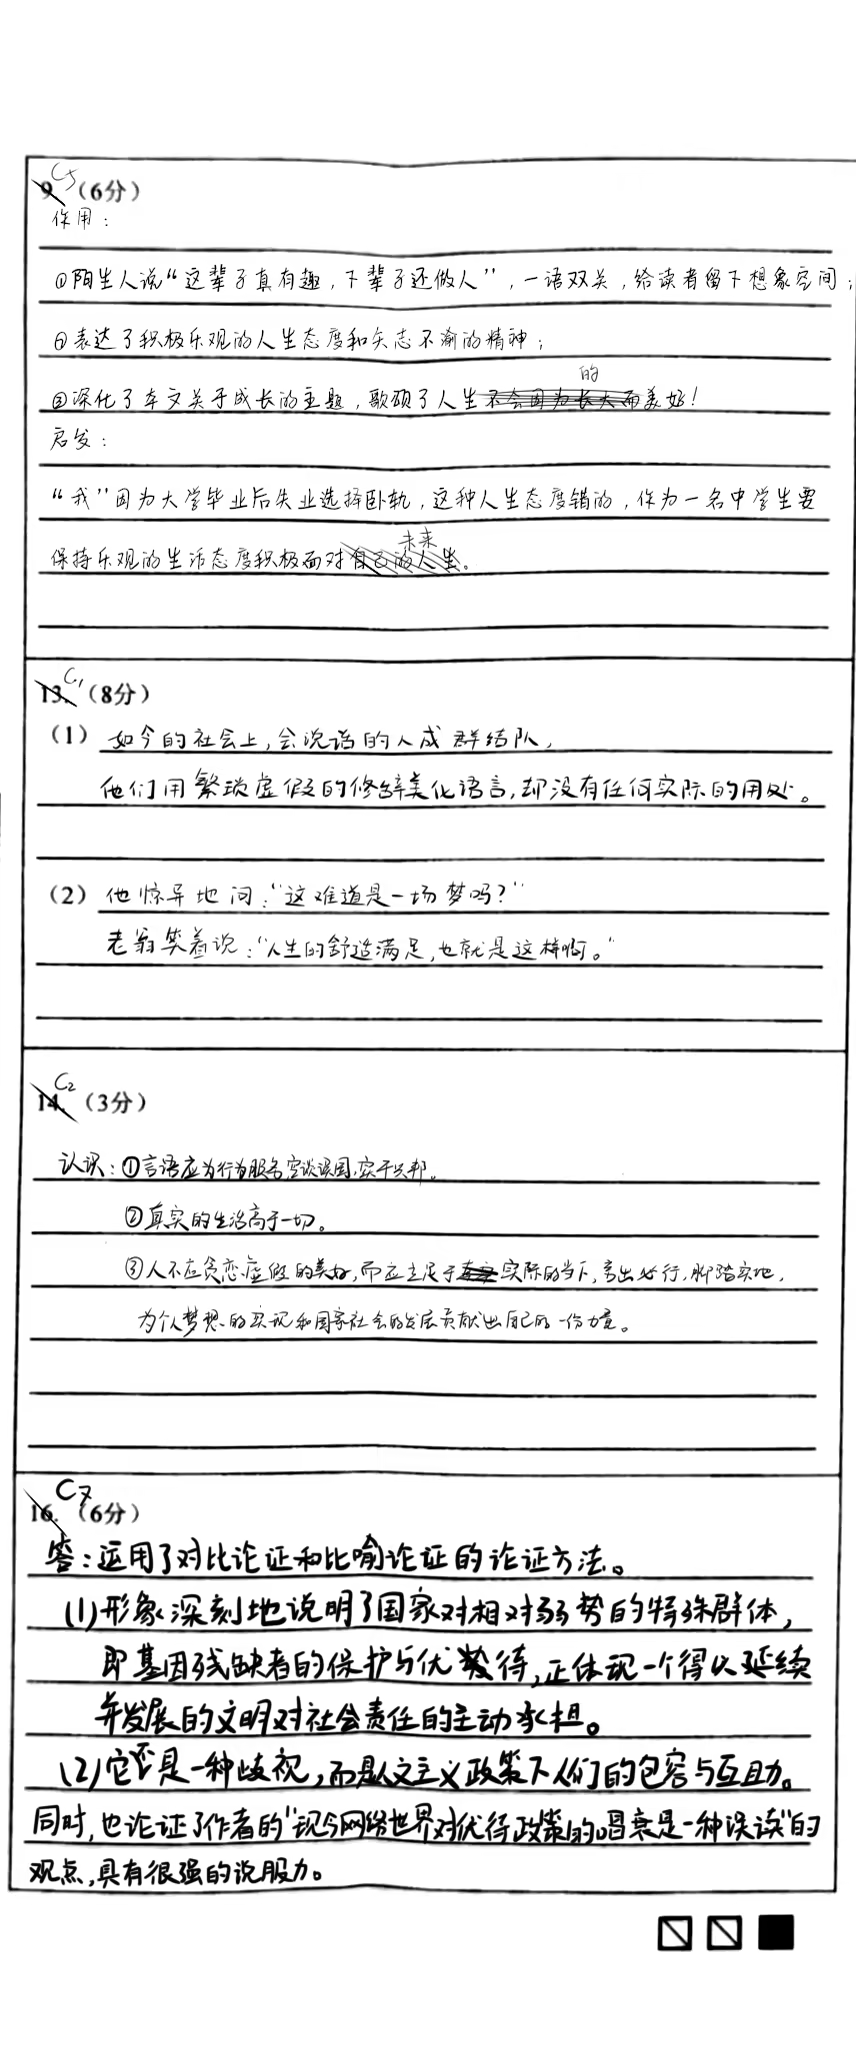 9. C5 (6分)
作用：
①陌生人说“这辈子真有趣，下辈子还做人”，一语双关，给读者留下想象空间；
②表达了积极乐观的人生态度和矢志不渝的精神；
的
③深化了本文关于成长的主题，歌颂了人生不会因为长大而美好！
启发：
“我”因为大学毕业后失业选择卧轨，这种人生态度错的，作为一名中学生要
未来
保持乐观的生活态度积极面对自己的人生。
13. C1 (8分)
(1) 如今的社会上，会说话的人成群结队，
他们用繁琐虚假的修辞美化语言，却没有任何实际的用处。
(2) 他惊异地问：“这难道是一场梦吗？”
老翁笑着说：“人生的舒适满足，也就是这样啊。”
14. C2 (3分)
认识：①言语应为行为服务，空谈误国，实干兴邦。
②真实的生活高于一切。
③人不应贪恋虚假的美好，而应立足于实际的当下，言出必行，脚踏实地，
为个人梦想的实现和国家社会的发展贡献出自己的一份力量。
16. C7 (6分)
答：运用了对比论证和比喻论证的论证方法。
(1)形象深刻地说明了国家对相对弱势的特殊群体，
即基因残缺者的保护与优待，正体现一个得以延续
并发展的文明对社会责任的主动承担。
(2)它不是一种歧视，而是人文主义政策下人们的包容与互助。
同时，也论证了作者的“现今网络世界对优待政策的唱衰是一种误读”的
观点，具有很强的说服力。